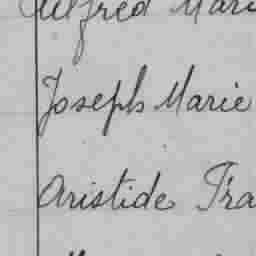 Alfred Mari
Joseph Marie
Aristide Fra